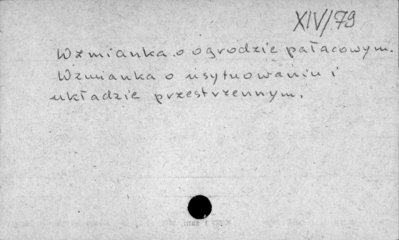 XIV/79
Wzmianka o ogrodzie pałacowym.
Wzmianka o usytuowaniu i
układzie przestrzennym.